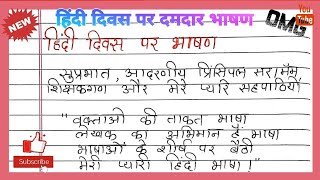 NEW
हिंदी दिवस पर दमदार भाषण
OMG
You
Tube
हिंदी दिवस पर भाषण
सुप्रभात, आदरणीय प्रिंसिपल सर/मैम,
शिक्षकगण और मेरे प्यारे सहपाठियों
"वक्ताओं की ताकत भाषा
लेखक का अभिमान है भाषा
भाषाओं के शीर्ष पर बैठी
मेरी प्यारी हिंदी भाषा!"
Subscribe